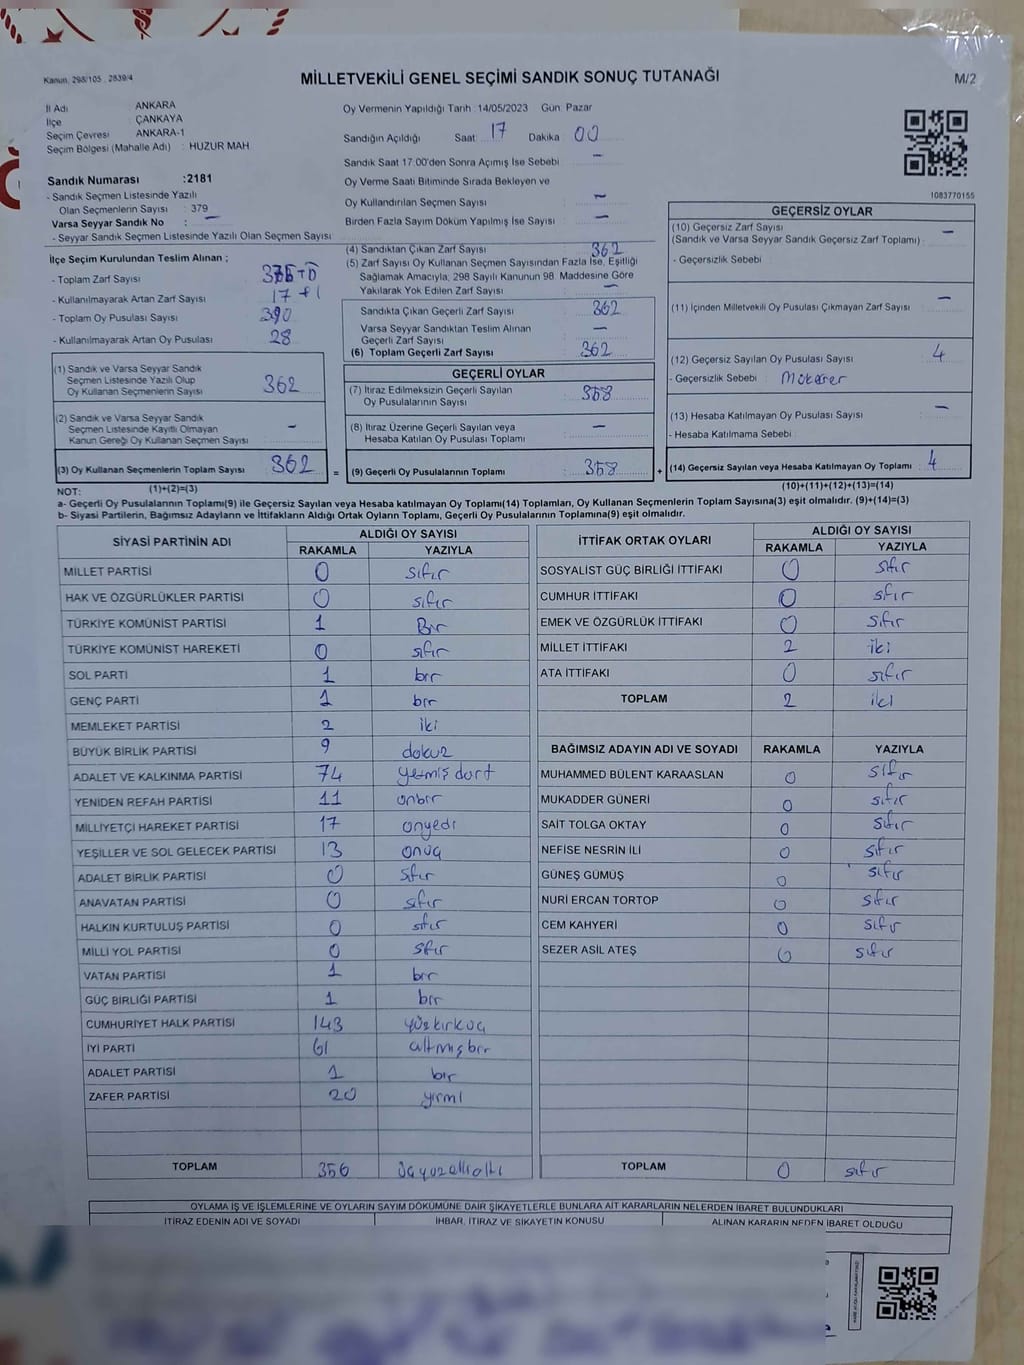 Kanun. 298/105 , 2839/4
MİLLETVEKİLİ GENEL SEÇİMİ SANDIK SONUÇ TUTANAĞI
M/2
İl Adı ANKARA
İlçe ÇANKAYA
Seçim Çevresi ANKARA-1
Seçim Bölgesi (Mahalle Adı) : HUZUR MAH
Oy Vermenin Yapıldığı Tarih : 14/05/2023 Gün: Pazar
Sandığın Açıldığı Saat: 17 Dakika : 00
Sandık Saat 17:00'den Sonra Açımış İse Sebebi : –
Oy Verme Saati Bitiminde Sırada Bekleyen ve
Oy Kullandırılan Seçmen Sayısı : –
Birden Fazla Sayım Döküm Yapılmış İse Sayısı : –
1083770155
Sandık Numarası :2181
- Sandık Seçmen Listesinde Yazılı
Olan Seçmenlerin Sayısı : 379
Varsa Seyyar Sandık No : –
- Seyyar Sandık Seçmen Listesinde Yazılı Olan Seçmen Sayısı
İlçe Seçim Kurulundan Teslim Alınan ;
- Toplam Zarf Sayısı
- Kullanılmayarak Artan Zarf Sayısı : 17 +1
- Toplam Oy Pusulası Sayısı : 390
- Kullanılmayarak Artan Oy Pusulası : 28
(1) Sandık ve Varsa Seyyar Sandık
Seçmen Listesinde Yazılı Olup
Oy Kullanan Seçmenlerin Sayısı : 362
(2) Sandık ve Varsa Seyyar Sandık
Seçmen Listesinde Kayıtlı Olmayan
Kanun Gereği Oy Kullanan Seçmen Sayısı : –
(3) Oy Kullanan Seçmenlerin Toplam Sayısı : 362
(1)+(2)=(3)
(4) Sandıktan Çıkan Zarf Sayısı : 362
(5) Zarf Sayısı Oy Kullanan Seçmen Sayısından Fazla İse, Eşitliği
Sağlamak Amacıyla; 298 Sayılı Kanunun 98. Maddesine Göre
Yakılarak Yok Edilen Zarf Sayısı : –
Sandıkta Çıkan Geçerli Zarf Sayısı : 362
Varsa Seyyar Sandıktan Teslim Alınan
Geçerli Zarf Sayısı : –
(6) Toplam Geçerli Zarf Sayısı : 362
GEÇERLİ OYLAR
(7) İtiraz Edilmeksizin Geçerli Sayılan
Oy Pusulalarının Sayısı : 358
(8) İtiraz Üzerine Geçerli Sayılan veya
Hesaba Katılan Oy Pusulası Toplamı : –
= (9) Geçerli Oy Pusulalarının Toplamı : 358
GEÇERSİZ OYLAR
(10) Geçersiz Zarf Sayısı
(Sandık ve Varsa Seyyar Sandık Geçersiz Zarf Toplamı) : –
- Geçersizlik Sebebi :
(11) İçinden Milletvekili Oy Pusulası Çıkmayan Zarf Sayısı : –
(12) Geçersiz Sayılan Oy Pusulası Sayısı : 4
- Geçersizlik Sebebi :
(13) Hesaba Katılmayan Oy Pusulası Sayısı : –
- Hesaba Katılmama Sebebi :
+ (14) Geçersiz Sayılan veya Hesaba Katılmayan Oy Toplamı : 4
(10)+(11)+(12)+(13)=(14)
NOT:
a- Geçerli Oy Pusulalarının Toplamı(9) ile Geçersiz Sayılan veya Hesaba katılmayan Oy Toplamı(14) Toplamları, Oy Kullanan Seçmenlerin Toplam Sayısına(3) eşit olmalıdır. (9)+(14)=(3)
b- Siyasi Partilerin, Bağımsız Adayların ve İttifakların Aldığı Ortak Oyların Toplamı, Geçerli Oy Pusulalarının Toplamına(9) eşit olmalıdır.
SİYASİ PARTİNİN ADI ALDIĞI OY SAYISI
RAKAMLA YAZIYLA
MİLLET PARTİSİ 0 sıfır
HAK VE ÖZGÜRLÜKLER PARTİSİ 0 sıfır
TÜRKİYE KOMÜNİST PARTİSİ 1 Bir
TÜRKİYE KOMÜNİST HAREKETİ 0 sıfır
SOL PARTİ 1 bir
GENÇ PARTİ 1 bir
MEMLEKET PARTİSİ 2 iki
BÜYÜK BİRLİK PARTİSİ 9 dokuz
ADALET VE KALKINMA PARTİSİ 74 yetmiş dört
YENİDEN REFAH PARTİSİ 11 onbir
MİLLİYETÇİ HAREKET PARTİSİ 17 onyedi
YEŞİLLER VE SOL GELECEK PARTİSİ 13 onüç
ADALET BİRLİK PARTİSİ 0 sıfır
ANAVATAN PARTİSİ 0 sıfır
HALKIN KURTULUŞ PARTİSİ 0 sıfır
MİLLİ YOL PARTİSİ 0 sıfır
VATAN PARTİSİ 1 bir
GÜÇ BİRLİĞİ PARTİSİ 1 bir
CUMHURİYET HALK PARTİSİ 143 yüzkırküç
İYİ PARTİ 61 altmışbir
ADALET PARTİSİ 1 bir
ZAFER PARTİSİ 20 yirmi
TOPLAM 356 üçyüzellialtı
İTTİFAK ORTAK OYLARI ALDIĞI OY SAYISI
RAKAMLA YAZIYLA
SOSYALİST GÜÇ BİRLİĞİ İTTİFAKI 0 sıfır
CUMHUR İTTİFAKI 0 sıfır
EMEK VE ÖZGÜRLÜK İTTİFAKI 0 sıfır
MİLLET İTTİFAKI 2 iki
ATA İTTİFAKI 0 sıfır
TOPLAM 2 iki
BAĞIMSIZ ADAYIN ADI VE SOYADI RAKAMLA YAZIYLA
MUHAMMED BÜLENT KARAASLAN 0 sıfır
MUKADDER GÜNERİ 0 sıfır
SAİT TOLGA OKTAY 0 sıfır
NEFİSE NESRİN İLİ 0 sıfır
GÜNEŞ GÜMÜŞ 0 sıfır
NURİ ERCAN TORTOP 0 sıfır
CEM KAHYERİ 0 sıfır
SEZER ASİL ATEŞ 0 sıfır
TOPLAM 0 sıfır
OYLAMA İŞ VE İŞLEMLERİNE VE OYLARIN SAYIM DÖKÜMÜNE DAİR ŞİKAYETLERLE BUNLARA AİT KARARLARIN NELERDEN İBARET BULUNDUKLARI
İTİRAZ EDENİN ADI VE SOYADI İHBAR, İTİRAZ VE ŞİKAYETİN KONUSU ALINAN KARARIN NEDEN İBARET OLDUĞU